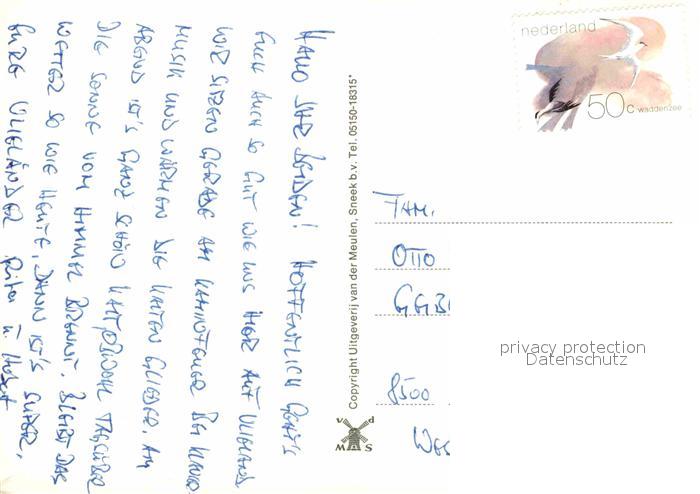 HALLO IHR BEIDEN! HOFFENTLICH GEHT'S
EUCH AUCH SO GUT WIE UNS HIER AUF VLIELAND.
WIR SITZEN GERADE AM KAMINFEUER BEI KLAVIER
MUSIK UND WÄRMEN DIE KALTEN GLIEDER. AM
ABEND IST'S GANZ SCHÖN KALT, OBWOHL TAGSÜBER
DIE SONNE VOM HIMMEL BRENNT. BLEIBT DAS
WETTER SO WIE HEUTE, DANN IST'S SUPER.
EURE VLIELÄNDER Rita u.
Copyright Uitgeverij van der Meulen, Sneek b.v. Tel. 05150-18315*
v d
M S
nederland
50c waddenzee
FAM.
OTTO
GEBI
privacy protection
Datenschutz
8500